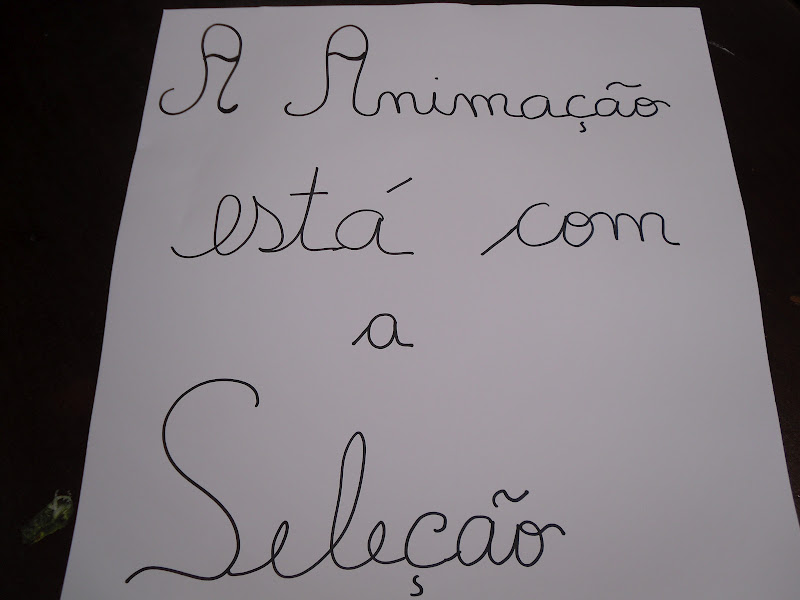 A Animação
está com
a
Seleção